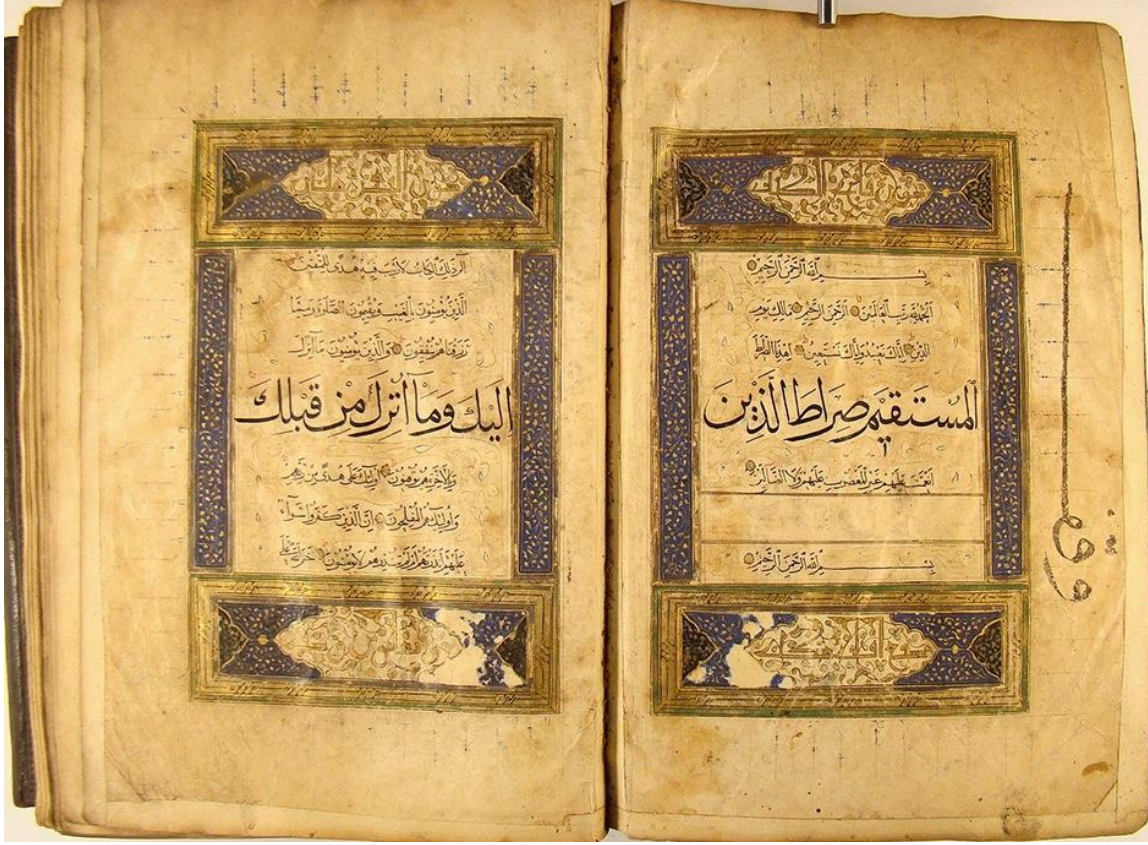 بِسْمِ اللَّهِ الرَّحْمَنِ الرَّحِيمِ
الْحَمْدُ لِلَّهِ رَبِّ الْعَالَمِينَ الرَّحْمَنِ الرَّحِيمِ مَالِكِ يَوْمِ
الدِّينِ إِيَّاكَ نَعْبُدُ وَإِيَّاكَ نَسْتَعِينُ اهْدِنَا الصِّرَاطَ
الْمُسْتَقِيمَ صِرَاطَ الَّذِينَ
أَنْعَمْتَ عَلَيْهِمْ غَيْرِ الْمَغْضُوبِ عَلَيْهِمْ وَلَا الضَّالِّينَ
بِسْمِ اللَّهِ الرَّحْمَنِ الرَّحِيمِ
وقف
الم ذَلِكَ الْكِتَابُ لَا رَيْبَ فِيهِ هُدًى لِلْمُتَّقِينَ
الَّذِينَ يُؤْمِنُونَ بِالْغَيْبِ وَيُقِيمُونَ الصَّلَاةَ وَمِمَّا
رَزَقْنَاهُمْ يُنْفِقُونَ وَالَّذِينَ يُؤْمِنُونَ بِمَا أُنْزِلَ
إِلَيْكَ وَمَا أُنْزِلَ مِنْ قَبْلِكَ
وَبِالْآخِرَةِ هُمْ يُوقِنُونَ أُولَئِكَ عَلَى هُدًى مِنْ رَبِّهِمْ
وَأُولَئِكَ هُمُ الْمُفْلِحُونَ إِنَّ الَّذِينَ كَفَرُوا سَوَاءٌ
عَلَيْهِمْ أَأَنْذَرْتَهُمْ أَمْ لَمْ تُنْذِرْهُمْ لَا يُؤْمِنُونَ خَتَمَ اللَّهُ عَلَى